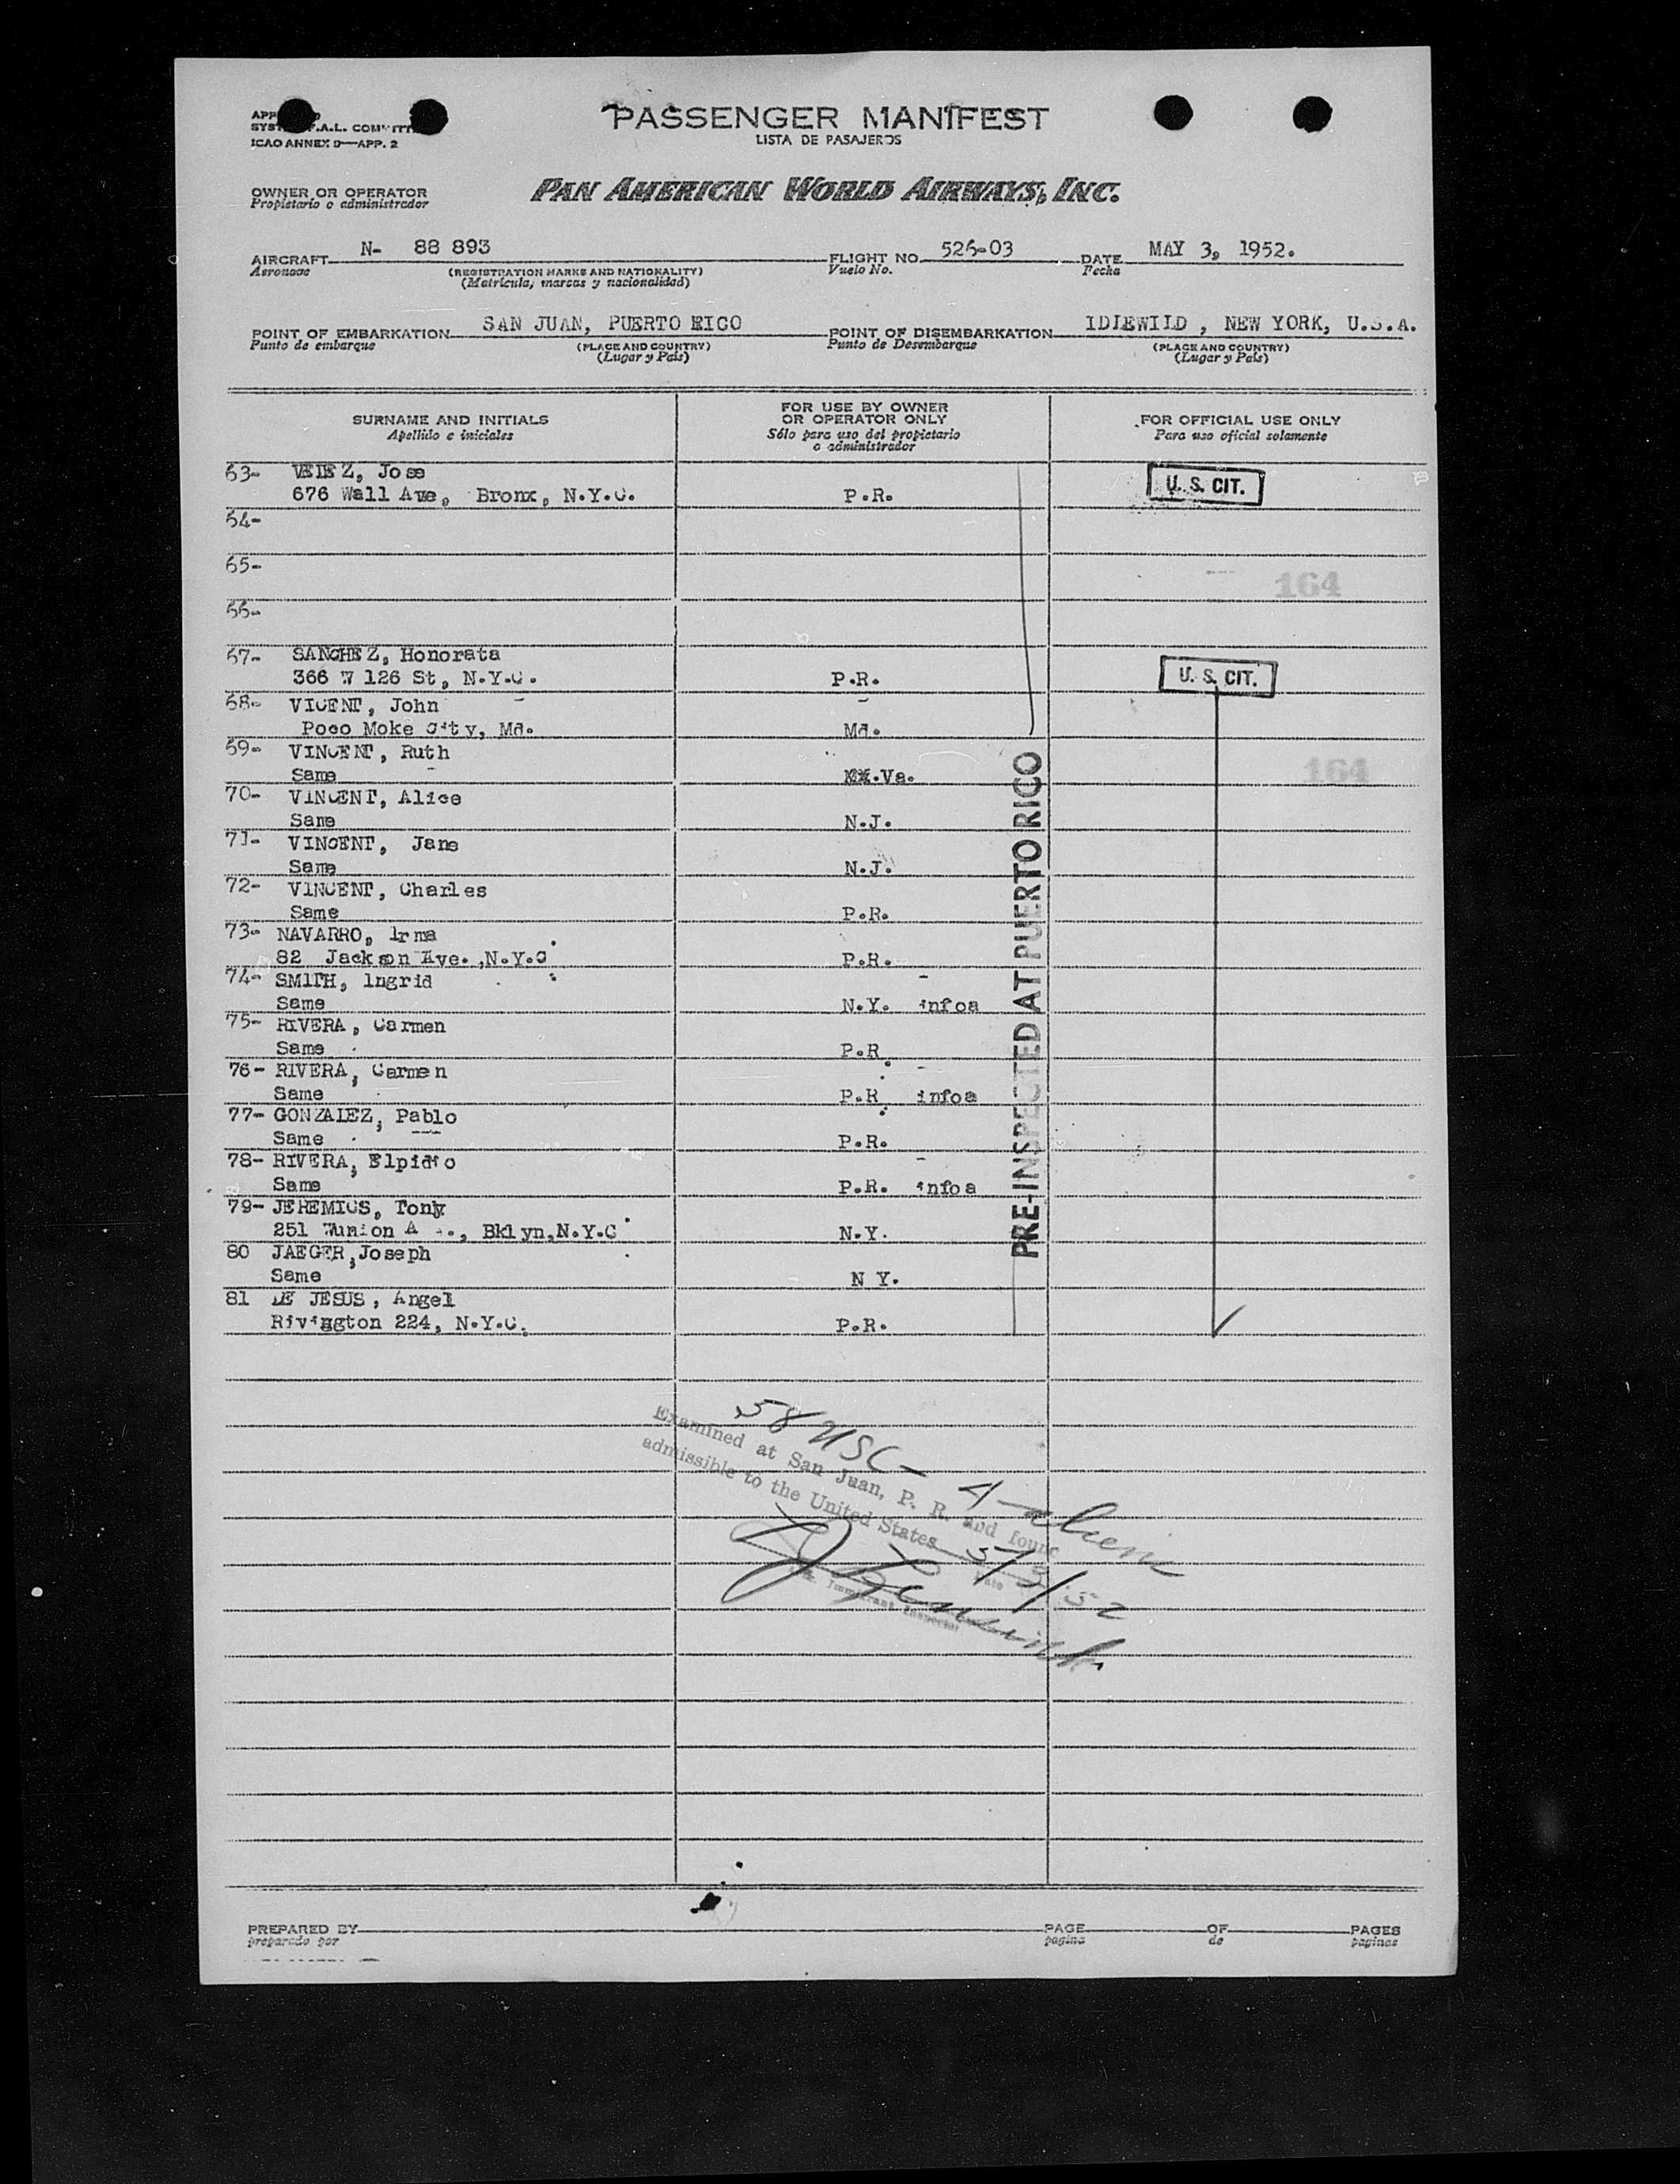 PASSENGER MANIFEST
LISTA DE PASAJEROS
ICAO ANNEX 9—APP. 2
OWNER OR OPERATOR
Propietario o administrador
PAN AMERICAN WORLD AIRWAYS, INC.
AIRCRAFT N- 88 893 FLIGHT NO. 526-03 DATE MAY 3, 1952.
Aeronave (REGISTRATION MARKS AND NATIONALITY) Vuelo No. Fecha
(Matrícula, marcas y nacionalidad)
POINT OF EMBARKATION SAN JUAN, PUERTO RICO POINT OF DISEMBARKATION IDLEWILD , NEW YORK, U.S.A.
Punto de embarque (PLACE AND COUNTRY) Punto de Desembarque (PLACE AND COUNTRY)
(Lugar y País) (Lugar y País)
SURNAME AND INITIALS
Apellido e iniciales
FOR USE BY OWNER
OR OPERATOR ONLY
Sólo para uso del propietario
o administrador
FOR OFFICIAL USE ONLY
Para uso oficial solamente
63- VELEZ, Jose
676 Wall Ave, Bronx, N.Y.C. P.R. U. S. CIT.
64-
65-
164
66-
67- SANCHEZ, Honorata
366 W 126 St, N.Y.C. P.R. U. S. CIT.
68- VICENT, John
Poco Moke City, Md. Md.
69- VINCENT, Ruth
Same Va.
164
70- VINCENT, Alice
Same N.J.
71- VINCENT, Jane
Same N.J.
72- VINCENT, Charles
Same P.R.
73- NAVARRO, Irma
82 Jackson Ave. ,N.Y.C P.R.
74- SMITH, Ingrid
Same N.Y. infoa
75- RIVERA, Carmen
Same P.R
76- RIVERA, Carmen
Same P.R infoa
77- GONZALEZ, Pablo
Same P.R.
78- RIVERA, Elpidio
Same P.R. infoa
79- JEREMIOS, Tony
251 A ., Bklyn,N.Y.C N.Y.
80 JAEGER,Joseph
Same N Y.
81 DE JESUS, Angel
Rivington 224, N.Y.C. P.R.
PRE-INSPECTED AT PUERTO RICO
58 USC - 4 - aliens
Examined at San Juan, P. R. and found
admissible to the United States 5/3/52
Date
Immigrant Inspector
PREPARED BY PAGE OF PAGES
preparado por pagina de paginas